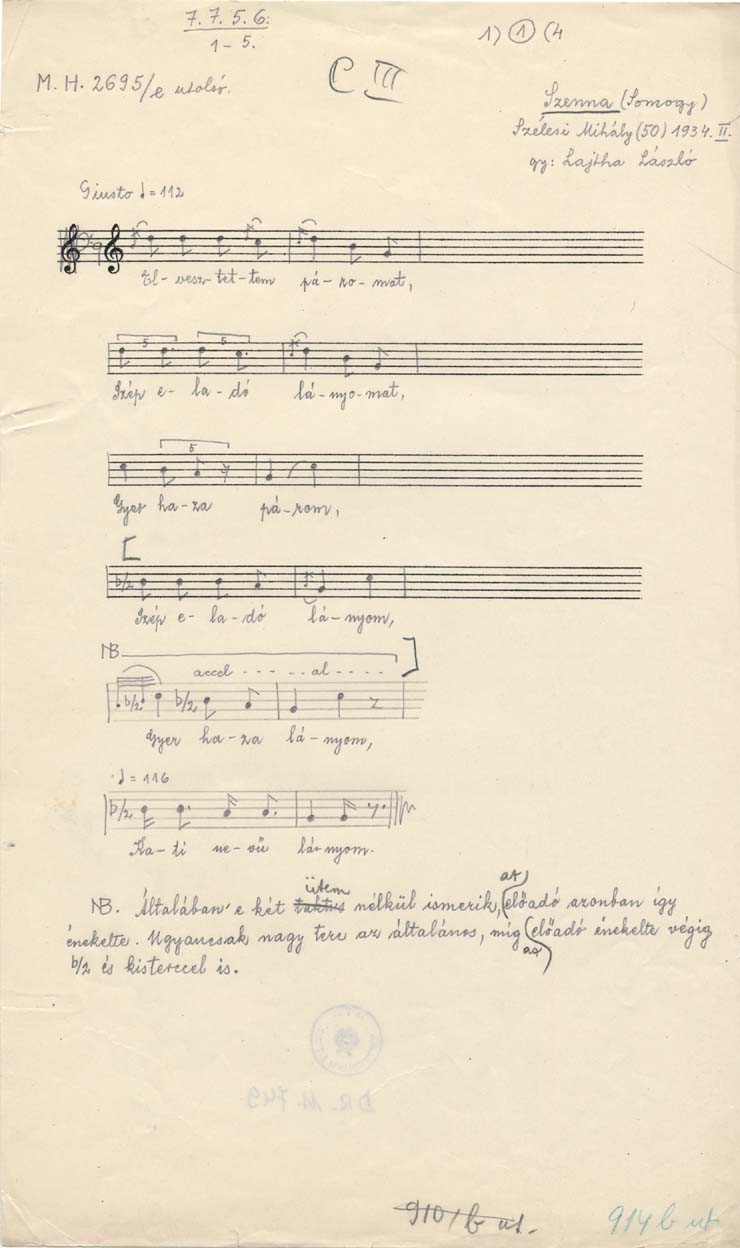 7. 7. 5. 6.
1 - 5.
1) 1 (4
M. H. 2695/e utolsó.
C III
Szenna (Somogy)
Szélesi Mihály (50) 1934. II.
gy: Lajtha László
Giusto ♩= 112
El- vesz- tet- tem pá- ro- mat,
5 5
Szép e- la- dó lá- nyo- mat,
5
Gyer ha- za pá- rom,
b/2
Szép e- la- dó lá- nyom,
NB
accel - - - - al - - - -
b/2 b/2
Gyer ha- za lá- nyom,
♩= 116
b/2
Ka- ti ne- vű lá- nyom.
NB. Általában e két taktus ütem nélkül ismerik, az előadó azonban így
énekelte. Ugyancsak nagy terc az általános, míg az előadó énekelte végig
b/2 és kisterccel is.
DR. M. 749
910/b ut.
914 b ut